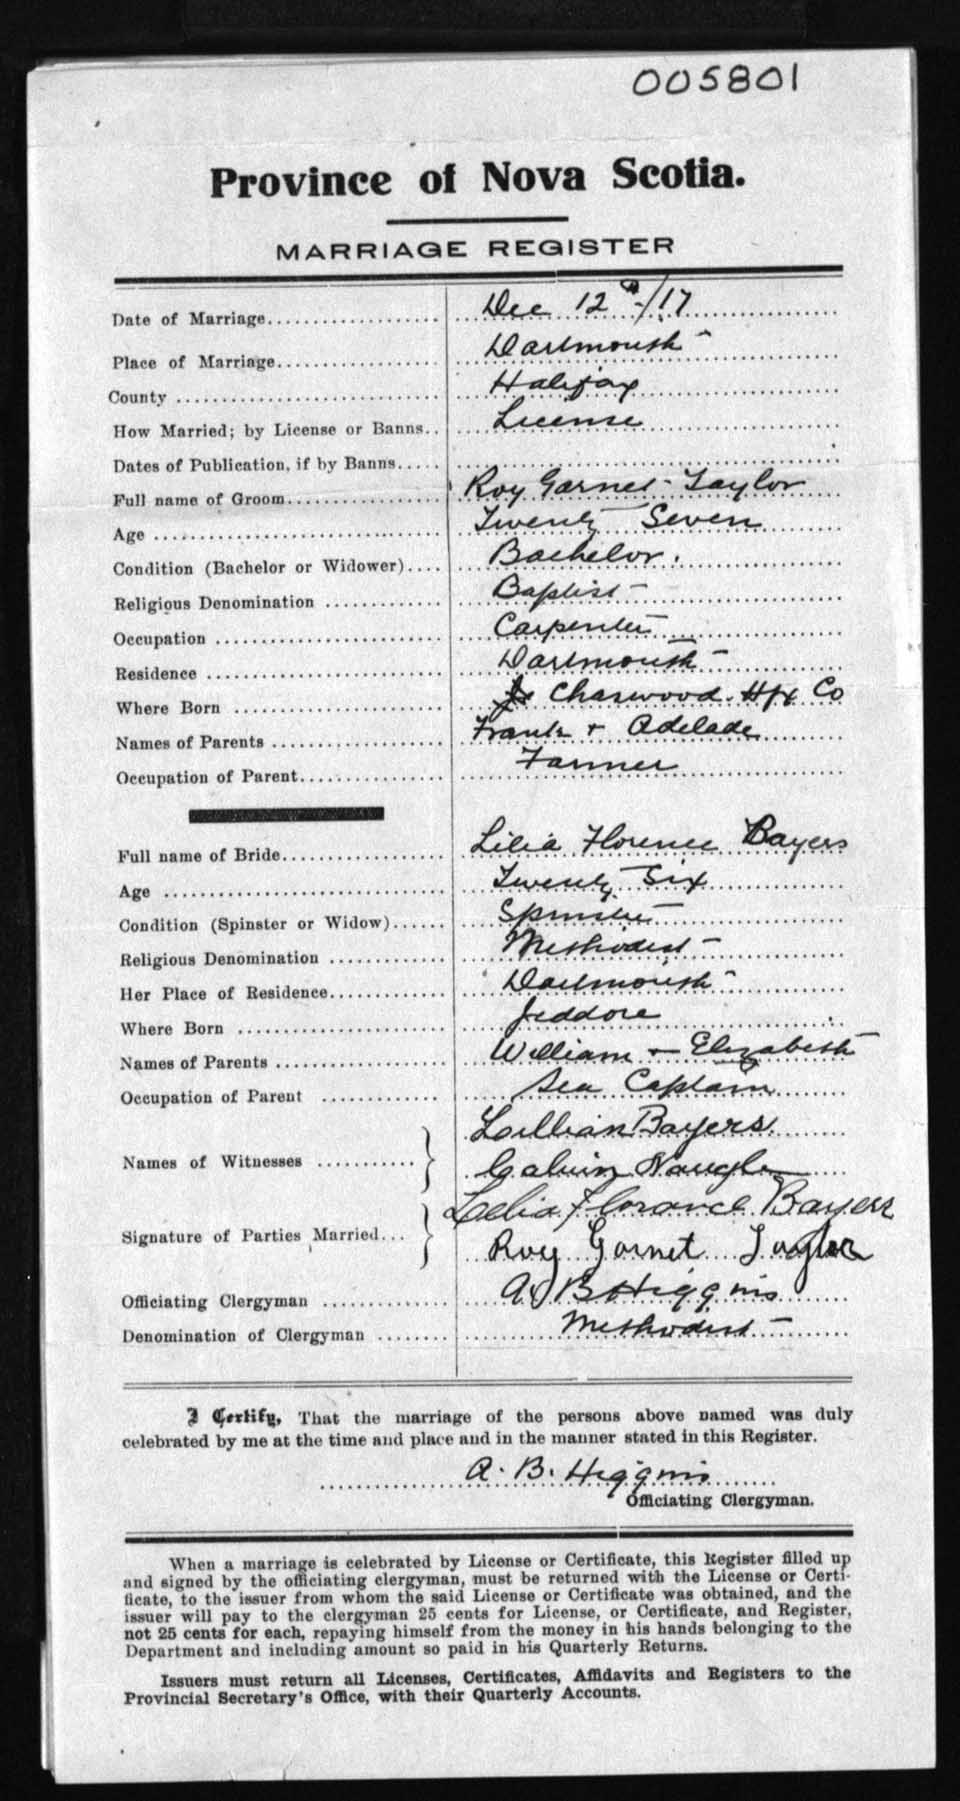 005801
Province of Nova Scotia.
MARRIAGE REGISTER
Date of Marriage Dec 12th/17
Place of Marriage Dartmouth
County Halifax
How Married; by License or Banns License
Dates of Publication, if by Banns
Full name of Groom Roy Garnet Taylor
Age Twenty Seven
Condition (Bachelor or Widower) Bachelor.
Religious Denomination Baptist
Occupation Carpenter
Residence Dartmouth
Where Born Chaswood Hfx Co
Names of Parents Frank + Adelade
Occupation of Parent Farmer
Full name of Bride Lilia Florence Bayers
Age Twenty Six
Condition (Spinster or Widow) Spinster
Religious Denomination Methodist
Her Place of Residence Dartmouth
Where Born Jeddore
Names of Parents William + Elizabeth
Occupation of Parent Sea Captain
Names of Witnesses Lillian Bayers
Calvin Naugle
Signature of Parties Married Lelia Florance Bayers
Roy Garnet Taylor
Officiating Clergyman A B Higgins
Denomination of Clergyman Methodist
I Certify, That the marriage of the persons above named was duly
celebrated by me at the time and place and in the manner stated in this Register.
A. B. Higgins
Officiating Clergyman.
When a marriage is celebrated by License or Certificate, this Register filled up
and signed by the officiating clergyman, must be returned with the License or Certi-
ficate, to the issuer from whom the said License or Certificate was obtained, and the
issuer will pay to the clergyman 25 cents for License, or Certificate, and Register,
not 25 cents for each, repaying himself from the money in his hands belonging to the
Department and including amount so paid in his Quarterly Returns.
Issuers must return all Licenses, Certificates, Affidavits and Registers to the
Provincial Secretary's Office, with their Quarterly Accounts.